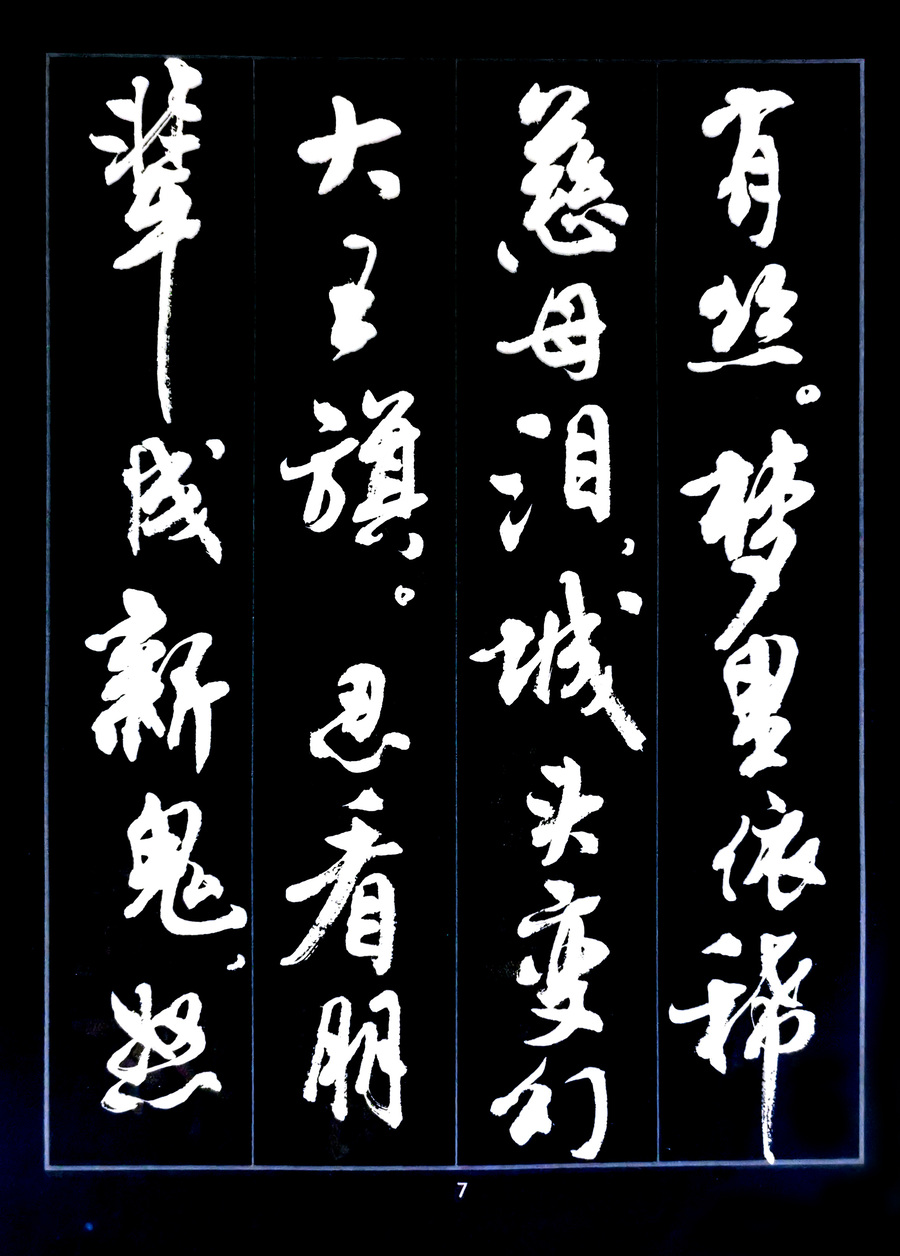 有丝。梦里依稀
慈母泪,城头变幻
大王旗。忍看朋
辈成新鬼,怒
7